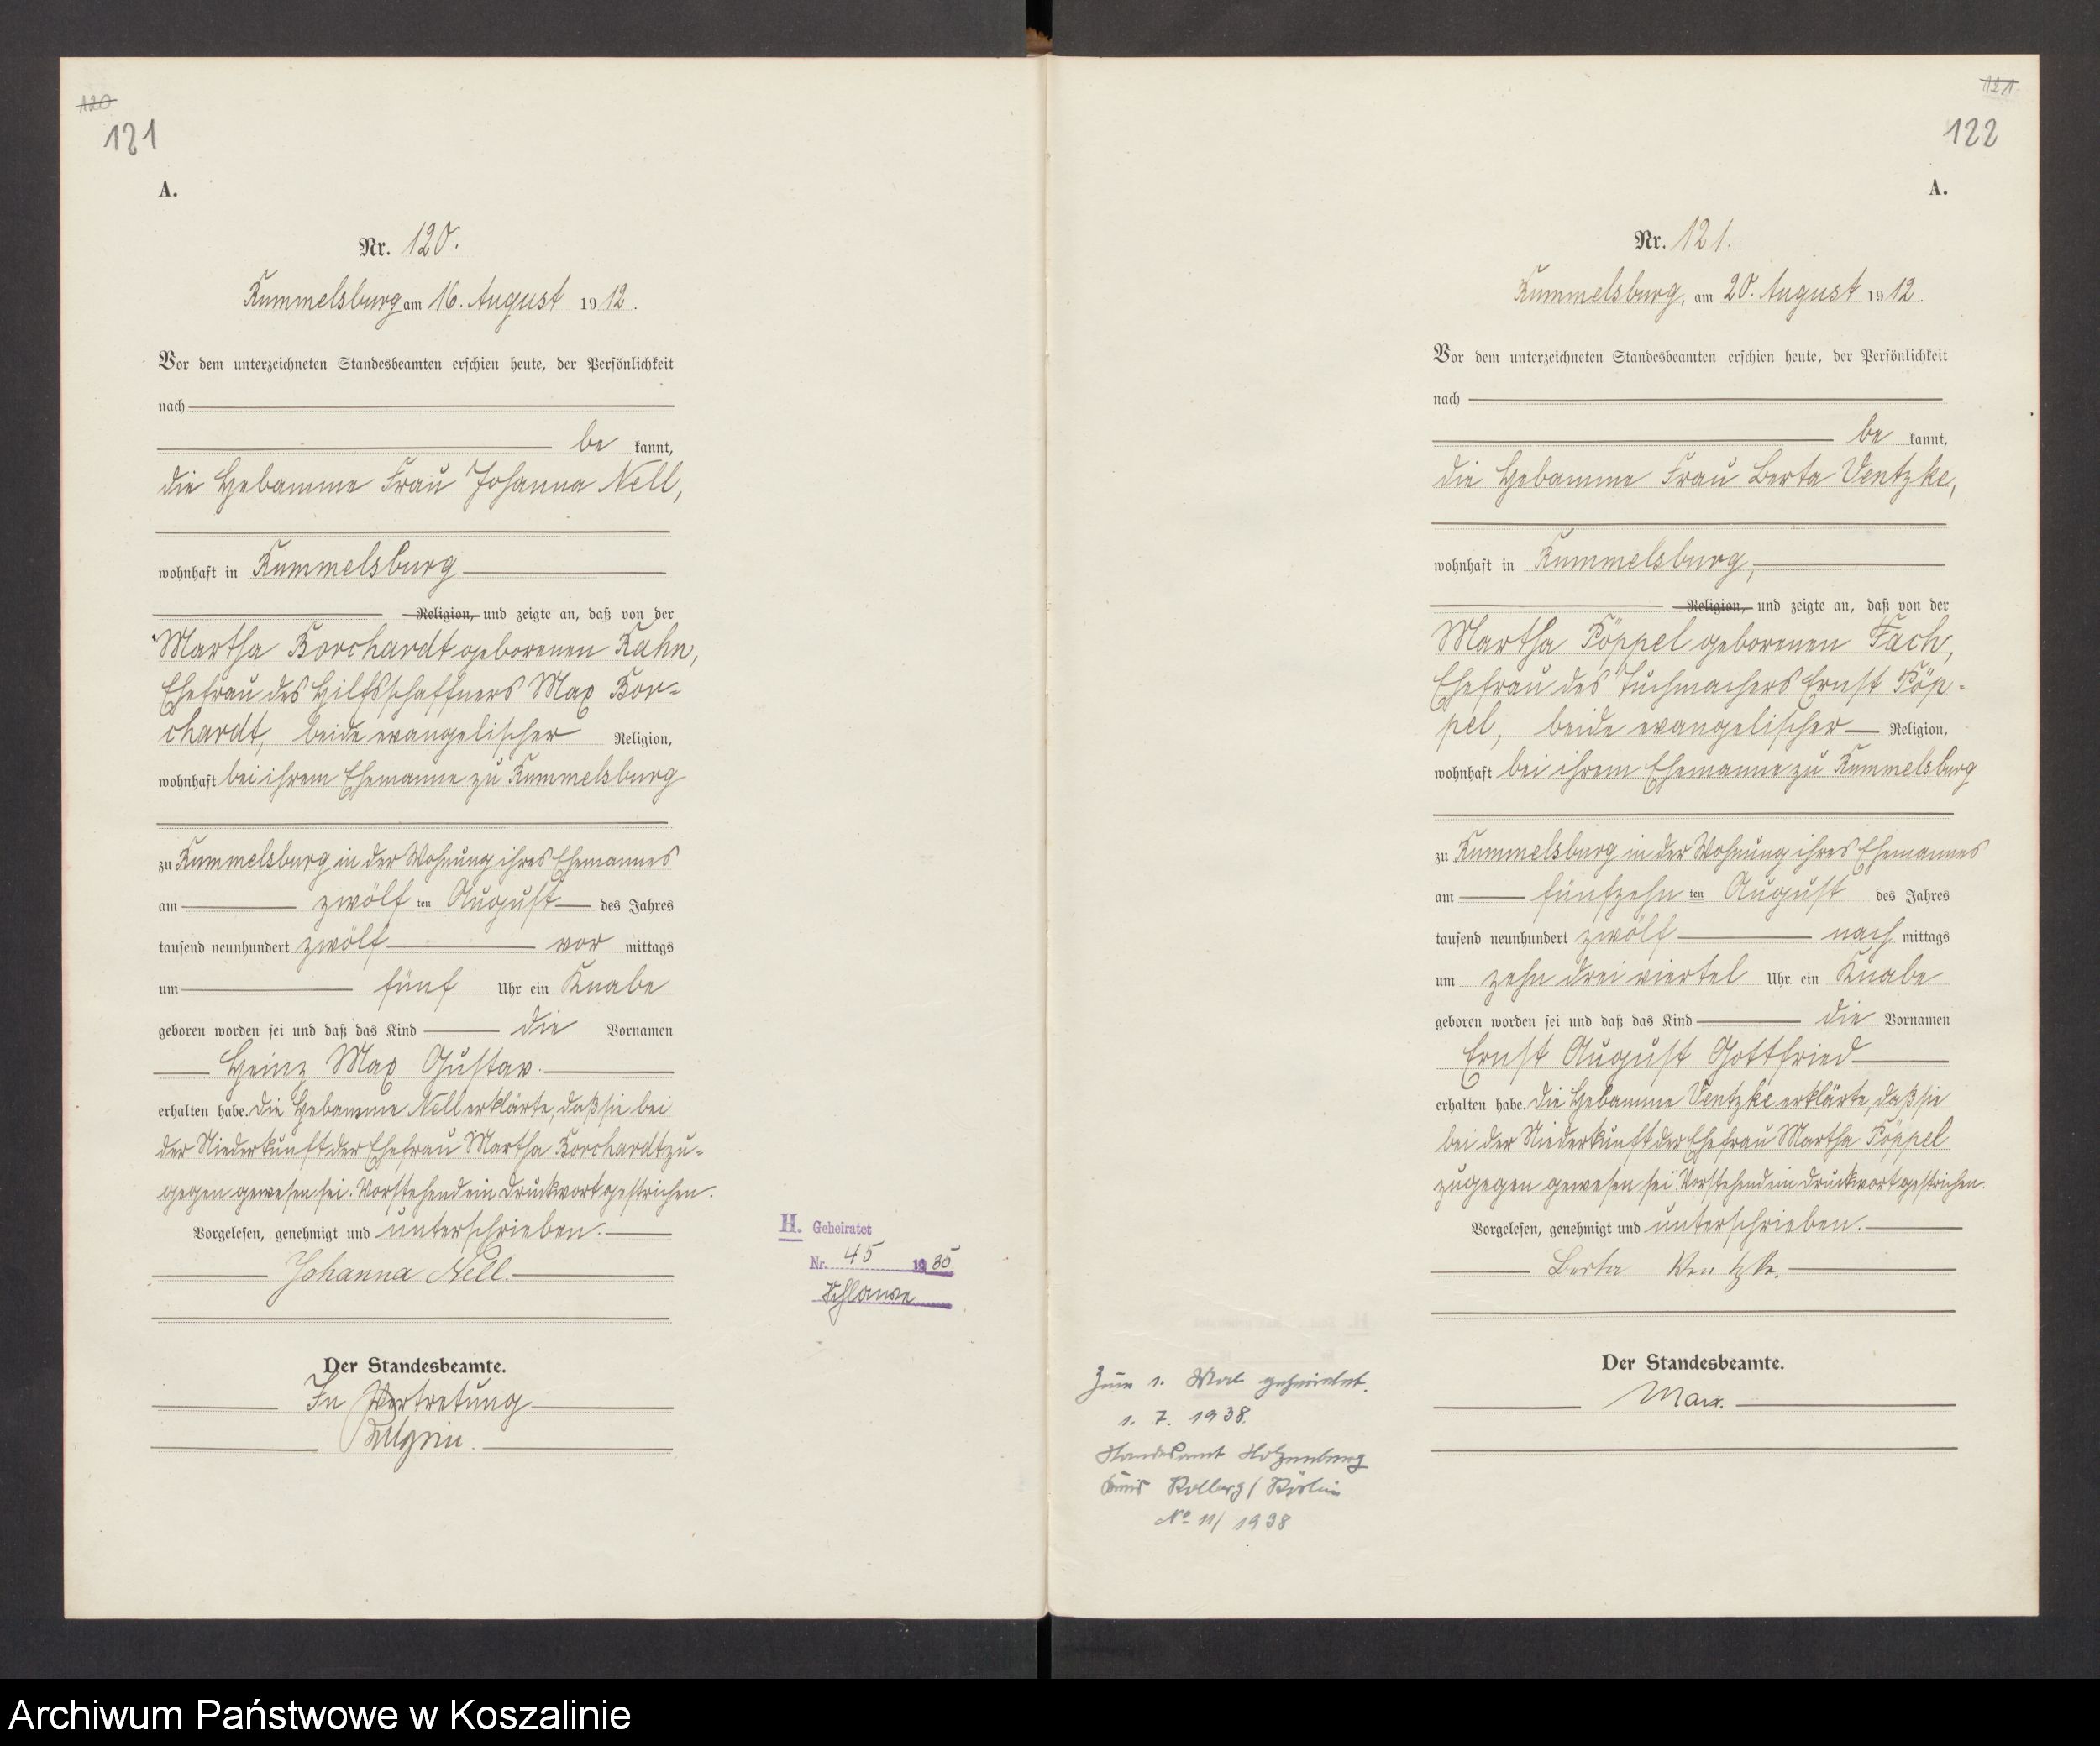 120
121
A.
Nr. 120.
Rummelsburg am 16. August 1912.
Vor dem unterzeichneten Standesbeamten erschien heute, der Persönlichkeit
nach
be kannt,
die Hebamme Frau Johanna Nell,
wohnhaft in Rummelsburg
Religion, und zeigte an, daß von der
Martha Borchardt geborenen Kahn,
Ehefrau des Hilfsschaffners Max Bor-
chardt, beide evangelischer Religion,
wohnhaft bei ihrem Ehemanne zu Rummelsburg
zu Rummelsburg in der Wohnung ihres Ehemannes
am zwölf ten August des Jahres
tausend neunhundert zwölf vor mittags
um fünf Uhr ein Knabe
geboren worden sei und daß das Kind die Vornamen
Heinz Max Gustav.
erhalten habe. Die Hebamme Nell erklärte, daß sie bei
der Niederkunft der Ehefrau Martha Borchardt zu-
gegen gewesen sei. Vorstehend ein Druckwort gestrichen.
Vorgelesen, genehmigt und unterschrieben.
Johanna Nell.
Der Standesbeamte.
In Vertretung
H. Geheiratet
Nr. 45 1935
Schlawe
121
122
A.
Nr. 121.
Rummelsburg, am 20. August 1912.
Vor dem unterzeichneten Standesbeamten erschien heute, der Persönlichkeit
nach
be kannt,
die Hebamme Frau Berta Ventzke,
wohnhaft in Rummelsburg,
Religion, und zeigte an, daß von der
Martha Pöppel geborenen Fach,
Ehefrau des Tuchmachers Ernst Pöp-
pel, beide evangelischer Religion,
wohnhaft bei ihrem Ehemanne zu Rummelsburg
zu Rummelsburg in der Wohnung ihres Ehemannes
am fünfzehn ten August des Jahres
tausend neunhundert zwölf nach mittags
um zehn drei viertel Uhr ein Knabe
geboren worden sei und daß das Kind die Vornamen
Ernst August Gottfried
erhalten habe. Die Hebamme Ventzke erklärte, daß sie
bei der Niederkunft der Ehefrau Martha Pöppel
zugegen gewesen sei. Vorstehend ein Druckwort gestrichen.
Vorgelesen, genehmigt und unterschrieben.
Berta Ventzke.
Der Standesbeamte.
Marx.
Zum 1. Mal geheiratet.
1. 7. 1938.
Standesamt
Kreis Kolberg / Köslin
No 11/1938
Archiwum Państwowe w Koszalinie